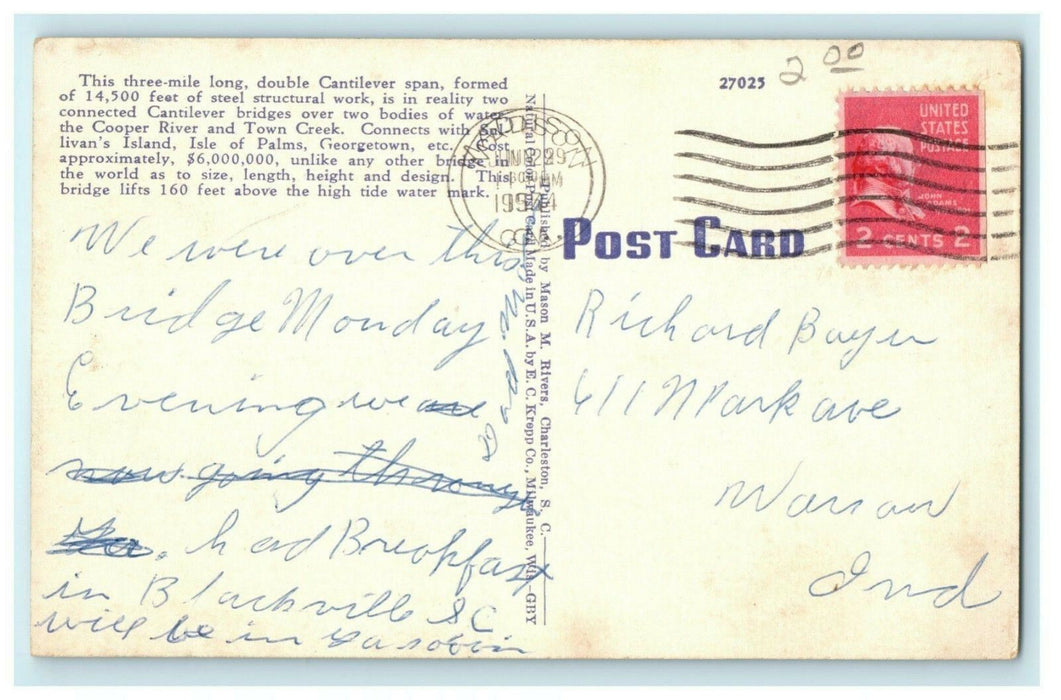 This three-mile long, double Cantilever span, formed
of 14,500 feet of steel structural work, is in reality two
connected Cantilever bridges over two bodies of water
the Cooper River and Town Creek. Connects with Sul-
livan's Island, Isle of Palms, Georgetown, etc. Cost
approximately, $6,000,000, unlike any other bridge in
the world as to size, length, height and design. This
bridge lifts 160 feet above the high tide water mark.
We were over this
Bridge Monday
Evening we are
now going through
. had Breakfast
in Blackville SC
will be in
Published by Mason M. Rivers, Charleston, S. C.
Natural Color Post Card Made in U.S.A. by E. C. Kropp Co., Milwaukee, Wis.—GBY
27025
2 00
UNITED
STATES
POSTAGE
JOHN
ADAMS
2 CENTS 2
JUN 29
POST CARD
Richard Boyer
611 N Park ave
Warsaw
Ind